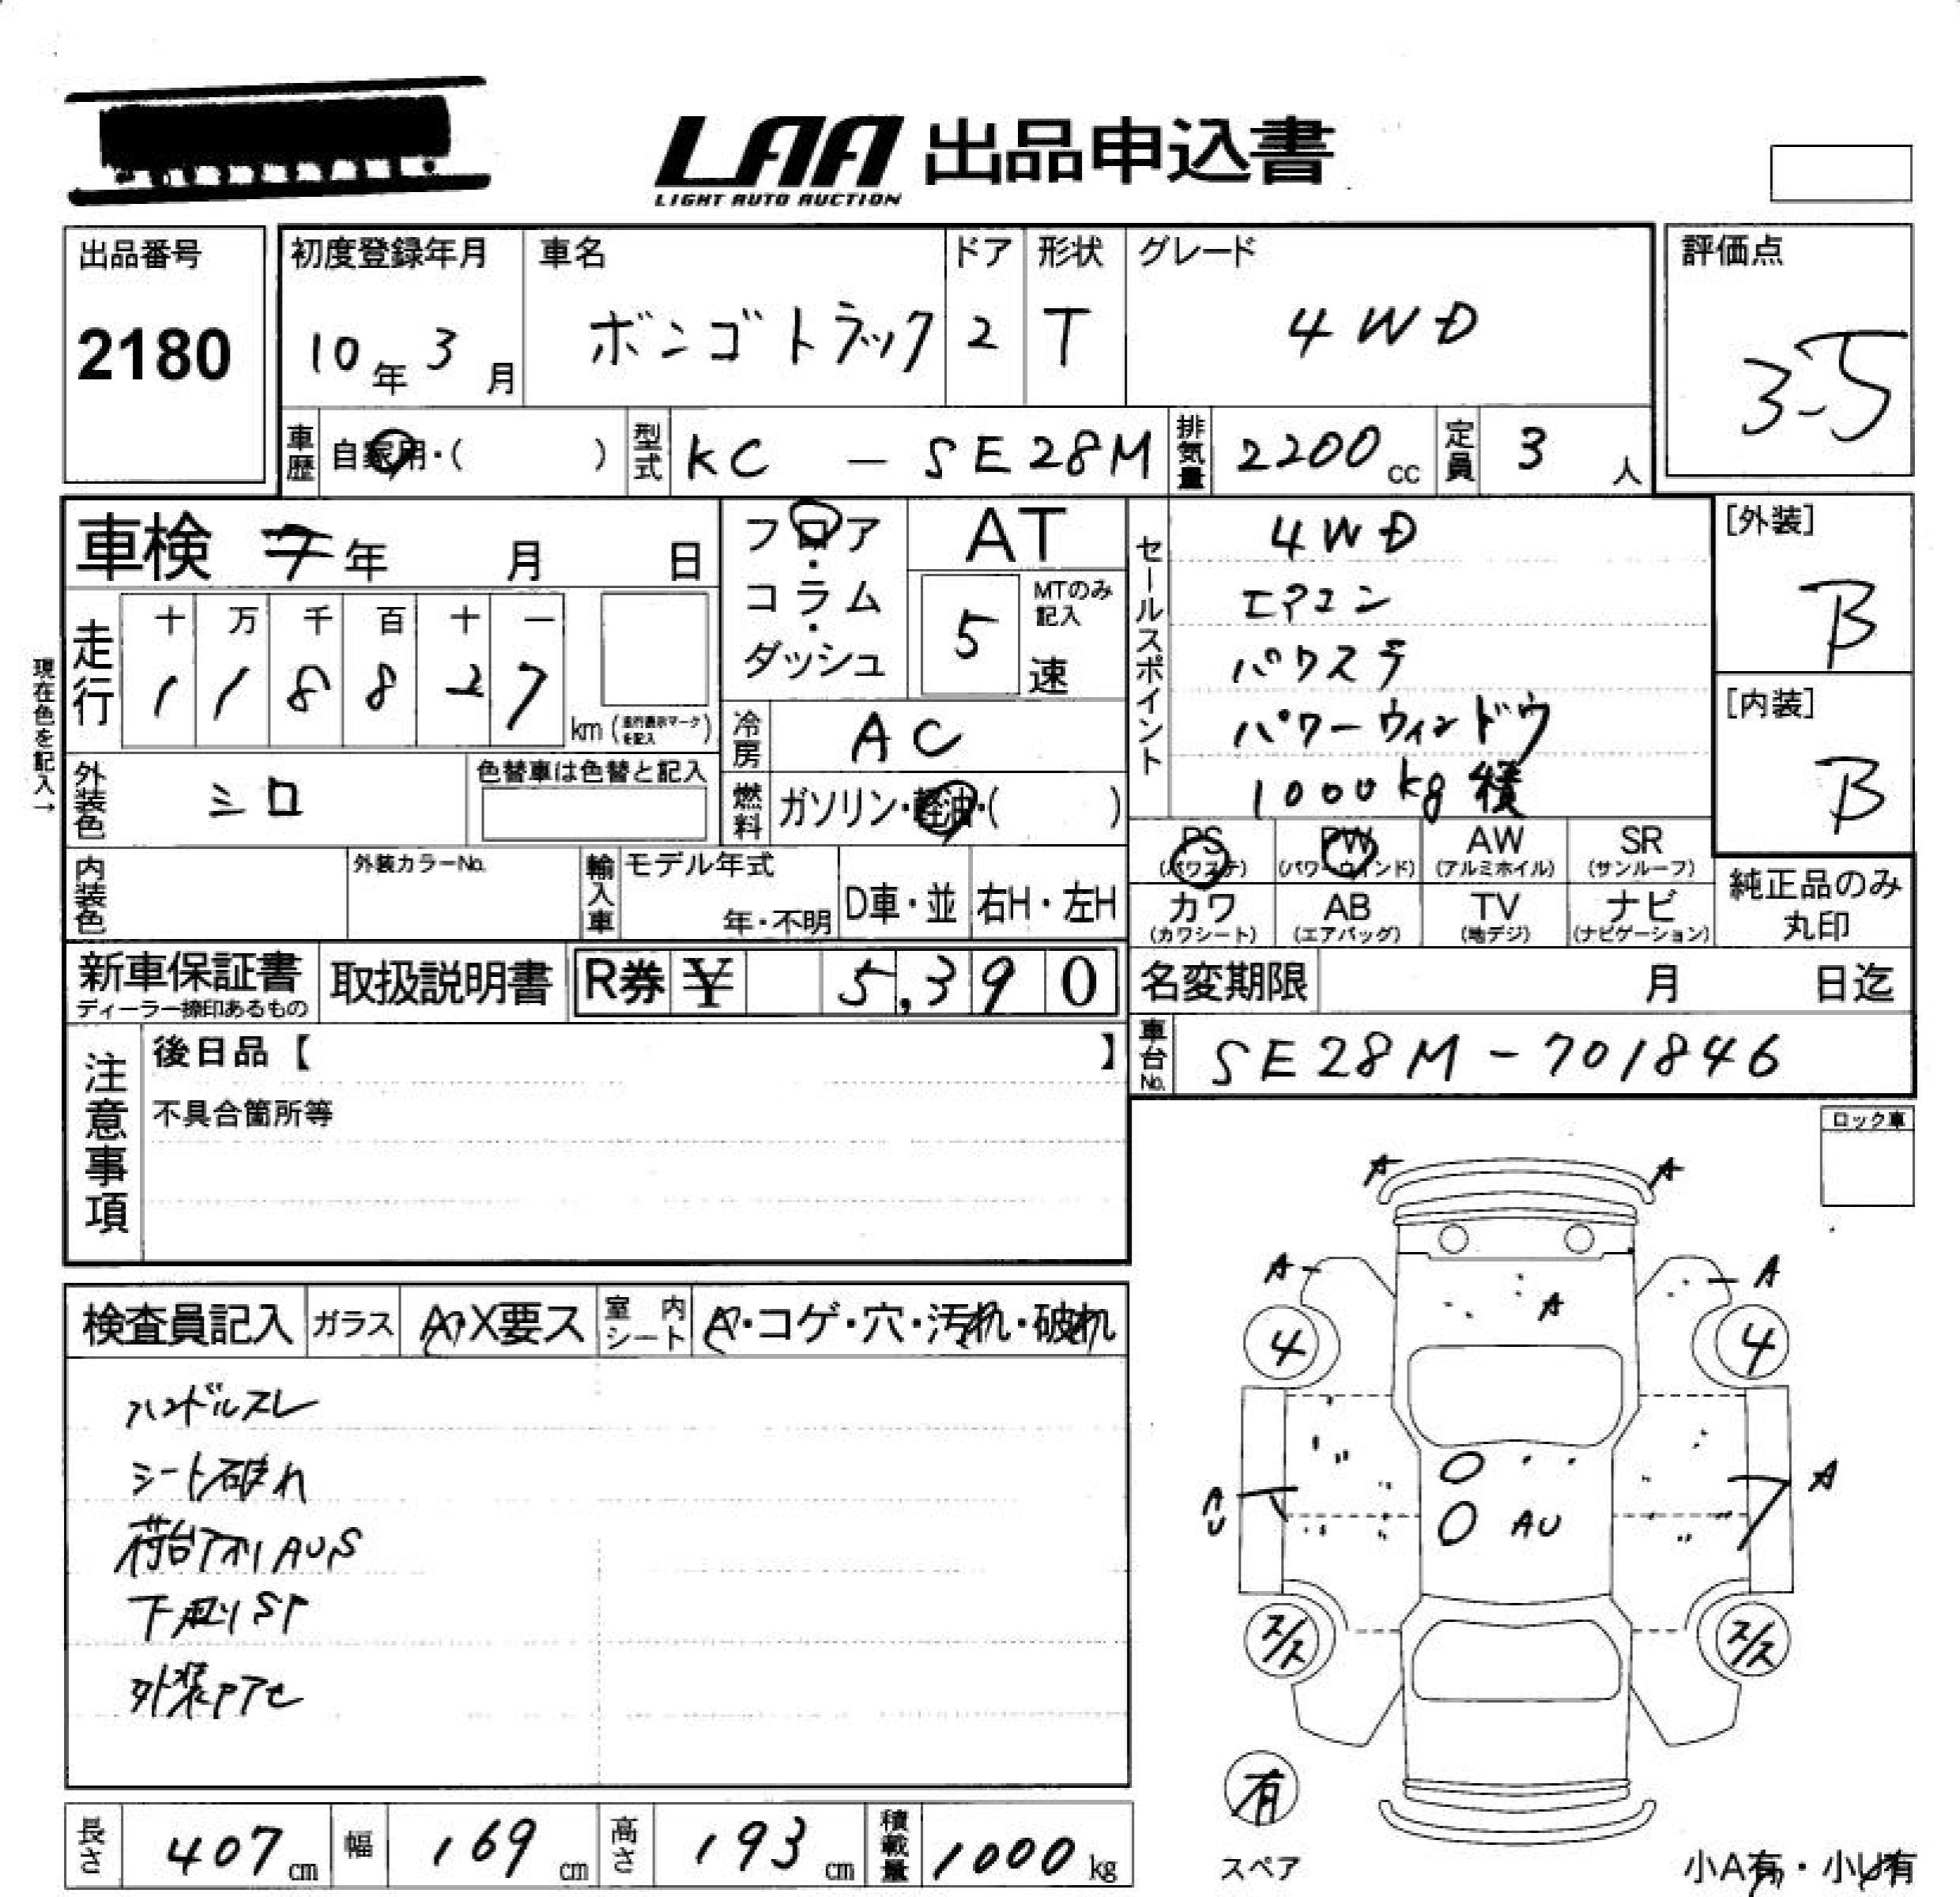 LAA 出品申込書
LIGHT AUTO AUCTION
出品番号
2180
初度登録年月
10年 3月
車名
ボンゴトラック
ドア
2
形状
T
グレード
4WD
評価点
3.5
車歴
自家用・( )
型式
KC - SE28M
排気量
2200cc
定員
3人
車検 年 月 日
走行
十 万 千 百 十 一
1 1 8 8 2 7 km
(走行表示マークを記入)
現在色を記入→
フロア・コラム・ダッシュ
AT
MTのみ記入
5速
冷房
AC
燃料
ガソリン・軽油・( )
セールスポイント
4WD
エアコン
パワステ
パワーウィンドウ
1000kg積
[外装]
B
[内装]
B
外装色
シロ
色替車は色替と記入
内装色
外装カラーNo.
輸入車
モデル年式
年・不明
D車・並
右H・左H
PS
(パワステ)
PW
(パワーウインド)
AW
(アルミホイル)
SR
(サンルーフ)
カワ
(カワシート)
AB
(エアバッグ)
TV
(地デジ)
ナビ
(ナビゲーション)
純正品のみ
丸印
新車保証書
ディーラー捺印あるもの
取扱説明書
R券 ¥ 5,390
名変期限 月 日迄
車台No.
SE28M-701846
注意事項
後日品【 】
不具合箇所等
ロック車
検査員記入
ガラス
A・X要ス
室内シート
A・コゲ・穴・汚れ・破れ
ハンドルスレ
シート破れ
荷台アオリAUS
下廻りSP
外装
A
A
A
A
A
4
4
A
AU
AU
ス/ス
ス/ス
有
スペア
小A有・小U有
長さ
407cm
幅
169cm
高さ
193cm
積載量
1000kg